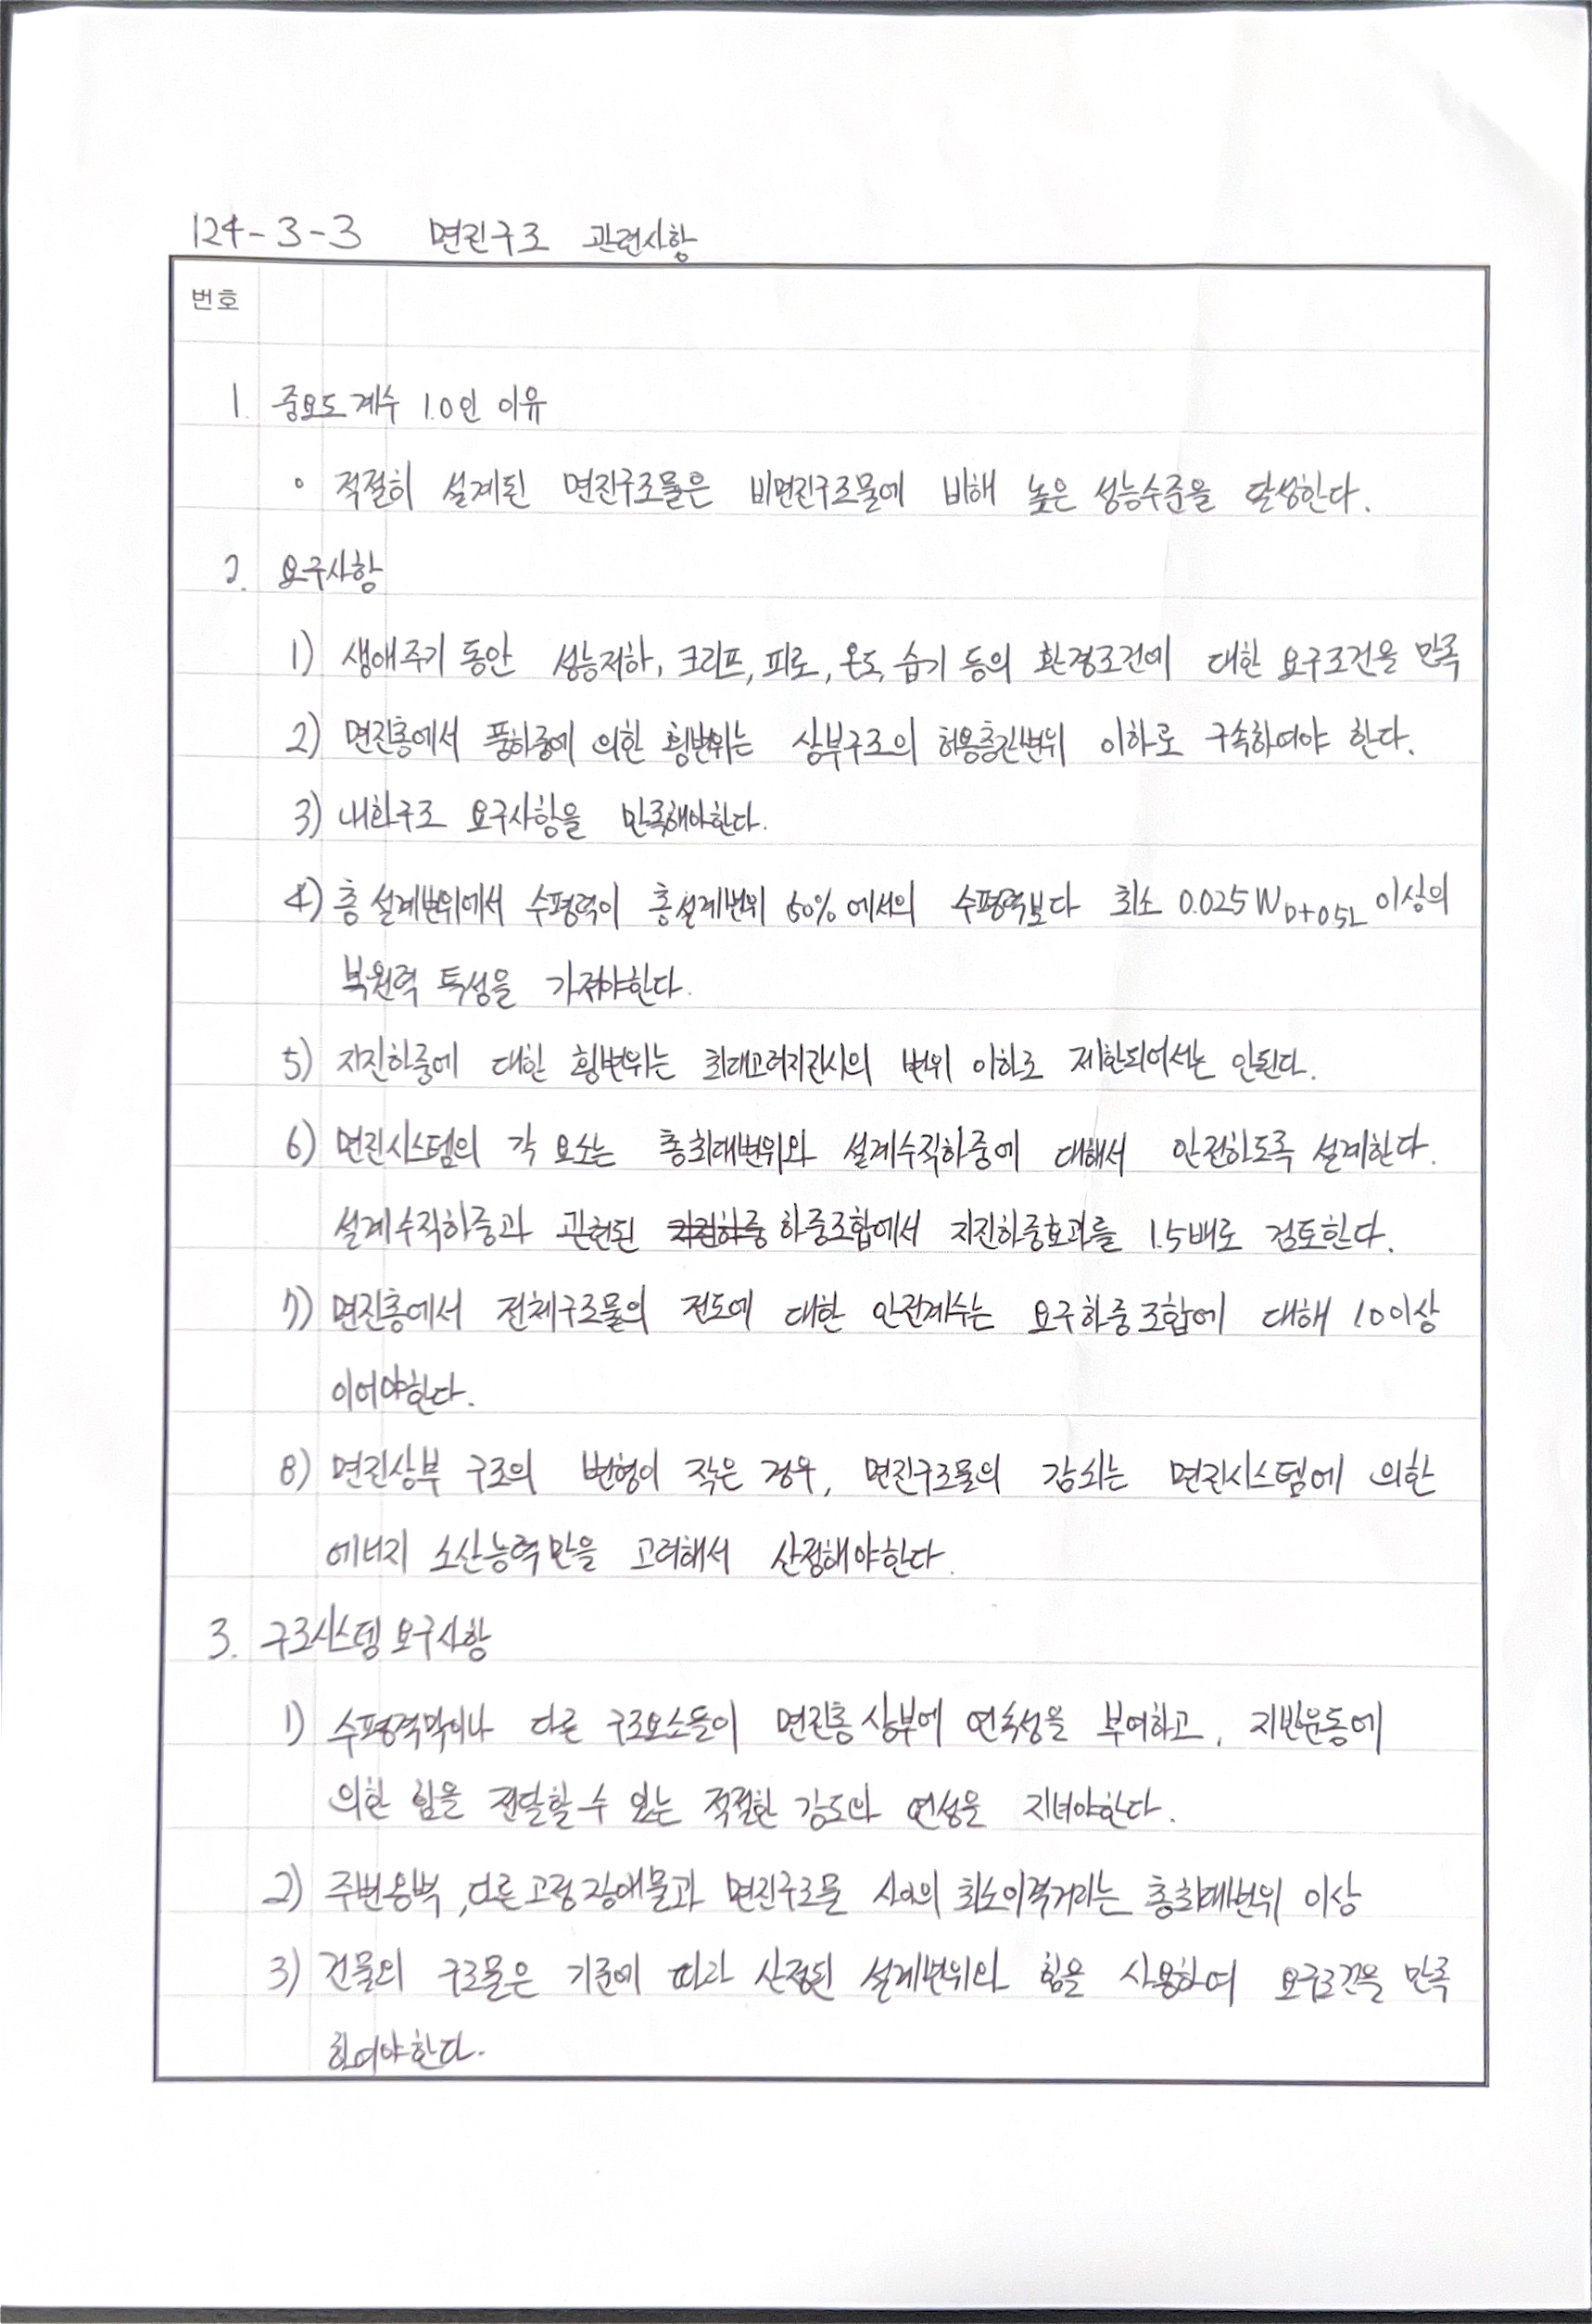 124-3-3 면진구조 관련사항
번호
1. 중요도계수 1.0인 이유
• 적절히 설계된 면진구조물은 비면진구조물에 비해 높은 성능수준을 달성한다.
2. 요구사항
1) 생애주기 동안 성능저하, 크리프, 피로, 온도, 습기 등의 환경조건에 대한 요구조건을 만족
2) 면진층에서 풍하중에 의한 횡변위는 상부구조의 허용층간변위 이하로 구속하여야 한다.
3) 내화구조 요구사항을 만족해야한다.
4) 총설계변위에서 수평력이 총설계변위 50%에서의 수평력보다 최소 0.025W_{D+0.5L} 이상의
복원력 특성을 가져야한다.
5) 지진하중에 대한 횡변위는 최대고려지진시의 변위 이하로 제한되어서는 안된다.
6) 면진시스템의 각 요소는 총최대변위와 설계수직하중에 대해서 안전하도록 설계한다.
설계수직하중과 관련된 하중조합에서 지진하중효과를 1.5배로 검토한다.
7) 면진층에서 전체구조물의 전도에 대한 안전계수는 요구하중조합에 대해 1.0이상
이어야한다.
8) 면진상부 구조의 변형이 작은 경우, 면진구조물의 감쇠는 면진시스템에 의한
에너지 소산능력만을 고려해서 산정해야한다.
3. 구조시스템 요구사항
1) 수평격막이나 다른 구조요소들이 면진층상부에 연속성을 부여하고, 지반운동에
의한 힘을 전달할 수 있는 적절한 강도와 연성을 지녀야한다.
2) 주변옹벽, 다른 고정장애물과 면진구조물 사이의 최소이격거리는 총최대변위 이상
3) 건물의 구조물은 기준에 따라 산정된 설계변위와 힘을 사용하여 요구조건을 만족
하여야한다.